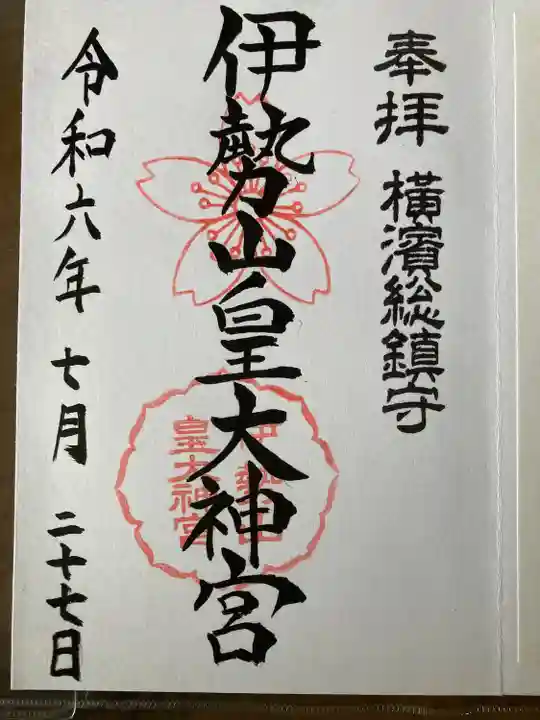 奉拝
横濱総鎮守
伊勢山皇大神宮
伊勢山
皇大神宮
令和六年七月二十七日